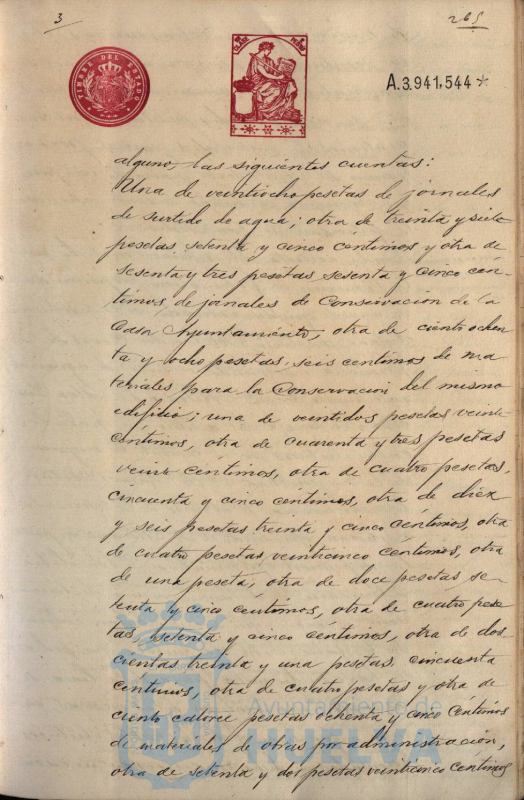 3
265
TIMBRE DEL ESTADO
A.3.941,544*
alguno, las siguientes cuentas:
Una de veintiocho pesetas de jornales
de surtido de agua; otra de treinta y siete
pesetas setenta y cinco céntimos y otra de
sesenta y tres pesetas sesenta y cinco cén-
timos, de jornales de Conservación de la
Casa Ayuntamiento, otra de ciento ochen
ta y ocho pesetas seis centimos de ma
teriales para la Conservacion del mismo
edificio; una de veintidos pesetas veinte
céntimos, otra de cuarenta y tres pesetas
veinte céntimos, otra de cuatro pesetas,
cincuenta y cinco céntimos, otra de diez
y seis pesetas treinta y cinco céntimos, otra
de cuatro pesetas veinticinco céntimos, otra
de una peseta, otra de doce pesetas se-
tenta y cinco céntimos, otra de cuatro pese
tas, setenta y cinco céntimos, otra de dos-
cientas treinta y una pesetas cincuenta
centimos, otra de cuatro pesetas y otra de
ciento catorce pesetas ochenta y cinco céntimos
de materiales de obras por administración,
otra de setenta y dos pesetas veinticinco centimos
Ayuntamiento de
HUELVA